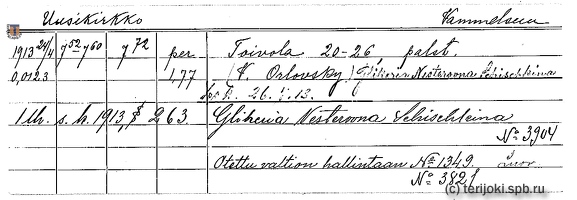 Uusikirkko Vammelsuu
1913 24/4 y52 y60 y72 per Toivola 20-26, palst.
0,0123 1,77 (V. Orlovsky) Glikeria Nesteroona Schischkina
26.I.13.
1 Uk. s. k. 1913, § 263. Glikeria Nesteroona Schischkina
No 3904
Otettu valtion hallintaan No 1349.
No 3821
(c) terijoki.spb.ru